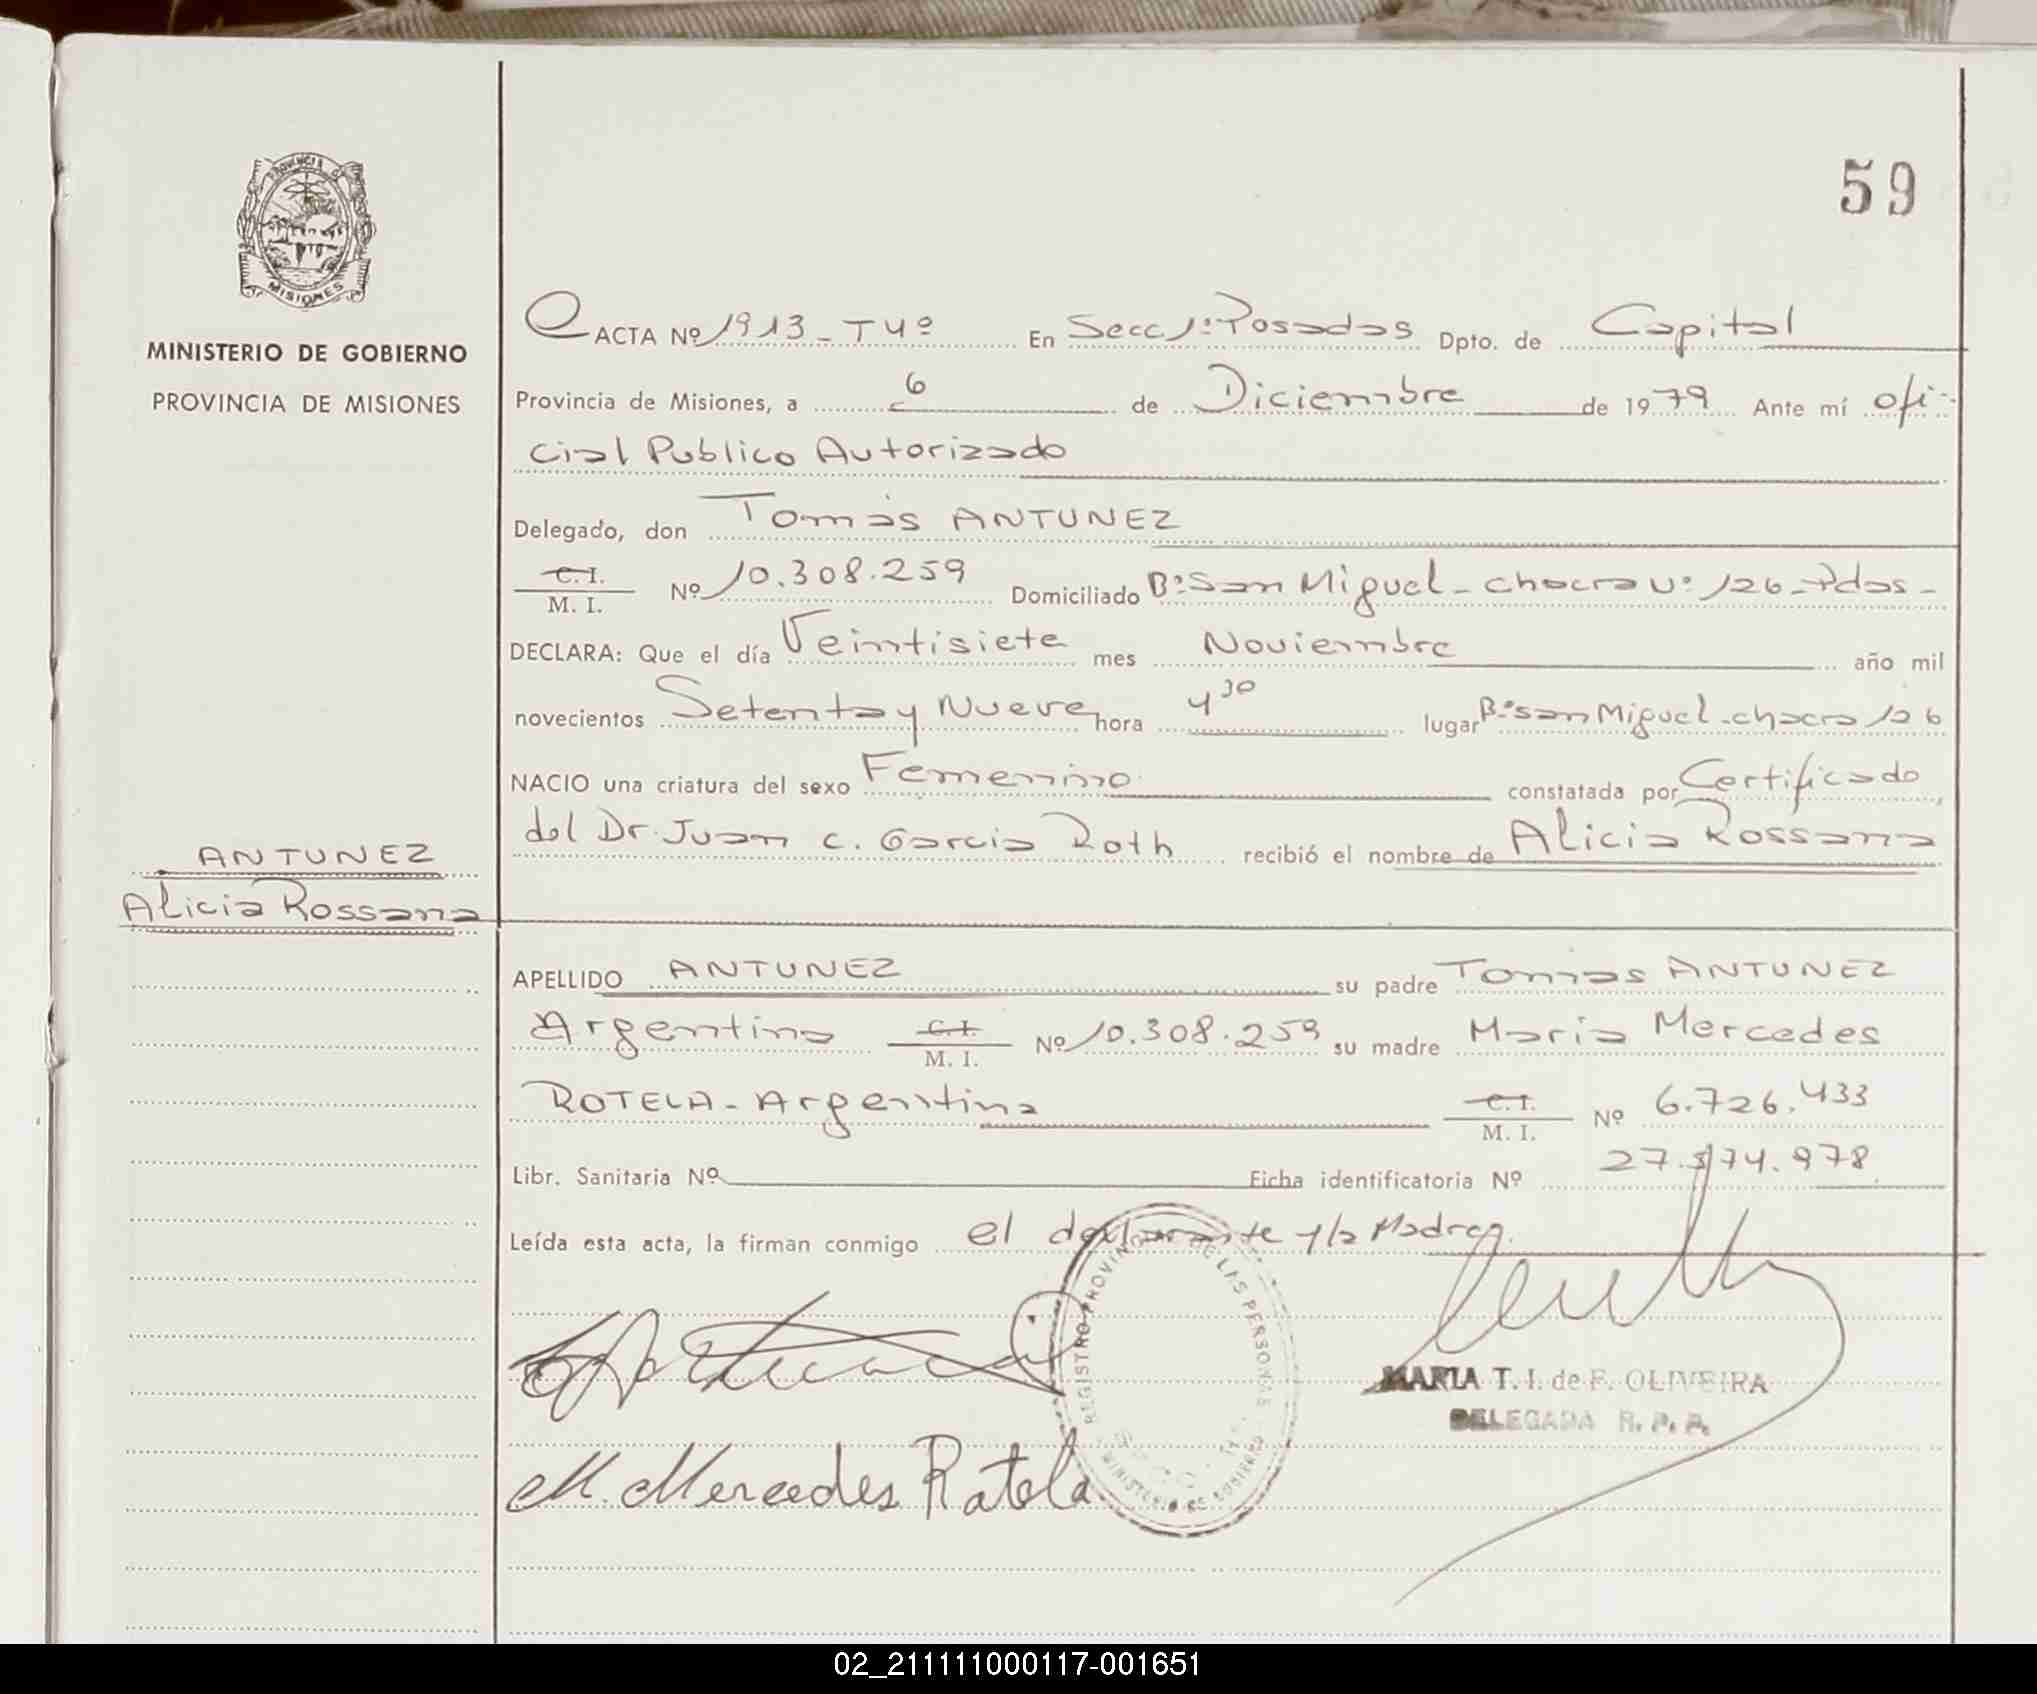 59
PROVINCIA D
MISIONES
MINISTERIO DE GOBIERNO
PROVINCIA DE MISIONES
ACTA Nº 1913 - T 4º En Secc 1º Posadas Dpto. de Capital
Provincia de Misiones, a 6 de Diciembre de 1979 Ante mí ofi-
cial Publico Autorizado
Delegado, don Tomás ANTUNEZ
C. I.
M. I. Nº 10.308.259 Domiciliado Bº San Miguel - chacra Nº 126 - Pdas -
DECLARA: Que el día Veintisiete mes Noviembre año mil
novecientos Setenta y Nueve hora 4 30 lugar Bº San Miguel - chacra 126
NACIO una criatura del sexo Femenino constatada por Certificado
del Dr. Juan C. Garcia Roth recibió el nombre de Alicia Rossana
ANTUNEZ
Alicia Rossana
APELLIDO ANTUNEZ su padre Tomas ANTUNEZ
Argentino C. I.
M. I. Nº 10.308.259 su madre Maria Mercedes
ROTELA - Argentina C. I.
M. I. Nº 6.726.433
Libr. Sanitaria Nº Ficha identificatoria Nº 27.574.978
Leída esta acta, la firman conmigo el declarante y la Madre
REGISTRO PROVINCIAL DE LAS PERSONAS
MINISTERIO DE GOBIERNO
MARIA T. I. de F. OLIVEIRA
DELEGADA R. P. P.
M. Mercedes Rotela
02_211111000117-001651